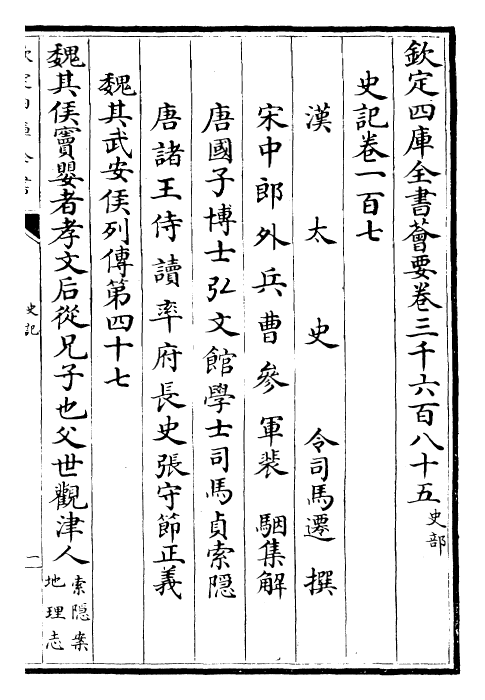 欽定四庫全書薈要卷三千六百八十五 史部
史記卷一百七
漢太史令司馬遷撰
宋中郎外兵曹參軍裴駰集解
唐國子博士弘文館學士司馬貞索隱
唐諸王侍讀率府長史張守節正義
魏其武安侯列傳第四十七
魏其侯竇嬰者孝文后從兄子也父世觀津人 索隱案
地理志
史記
一